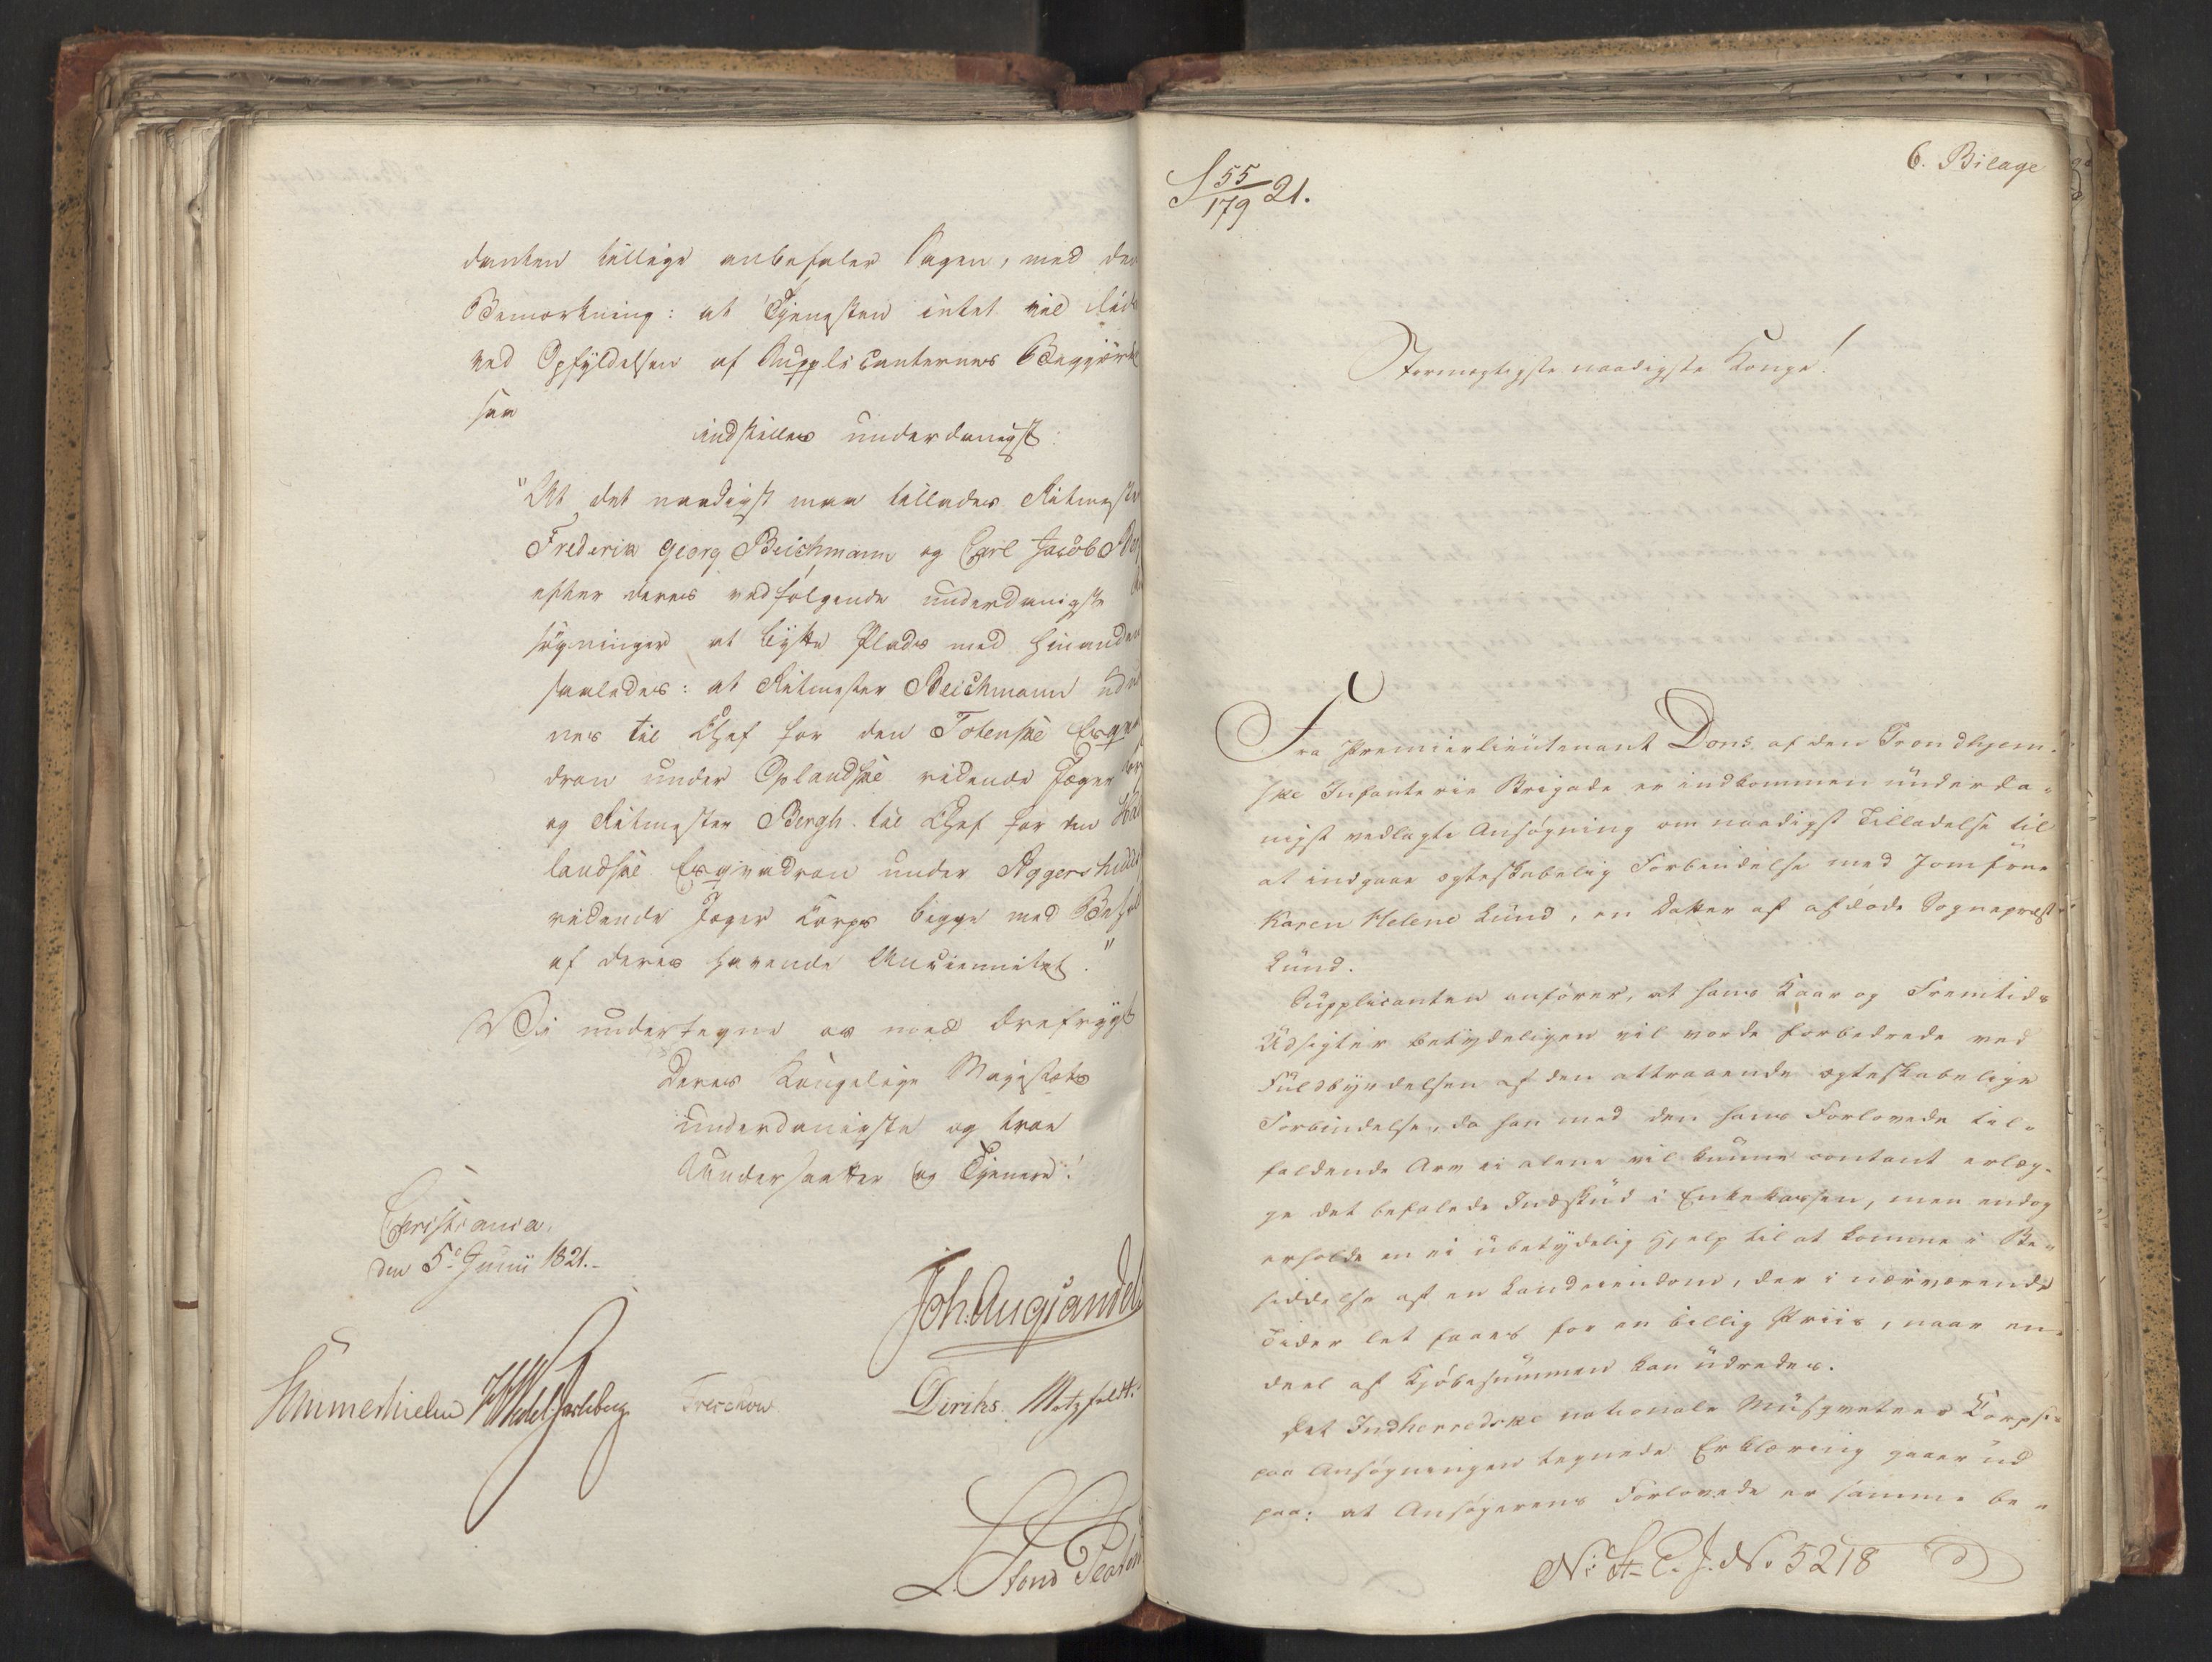 danten tillige anbefaler Sagen, med den
Bemærkning: at Tjenesten intet vil lide
ved Opfyldelsen af Supplicanternes Begjæring
saa
indstilles underdanigst:
"At det naadigst maa tillades Ritmester
Frederik Georg Beichmann og Carl Jacob
efter deres vedfølgende underdanigste
søgninger at bytte Plads med hinanden
saaledes: at Ritmester Beichmann udnæv
nes til Chef for den Totenske Esqva
dron under Oplandske ridende Jæger
og Ritmester Bergh til Chef for den
landske Esqvadron under Aggershuus
ridende Jæger Corps begge med
af deres havende Anciennitet."
Vi undertegne os med Ærefrygt
Deres Kongelige Majestæts
underdanigste og troe
Undersaatter og Tjenere!
Christiania,
den 5te Junii 1821.
Joh. Aug. Sandels
Sommerhielm Wedel Jarlsberg Treschow Diriks. Motzfeldt.
L. Stoud Platou
6. Bilage
S 55/179 21.
Stormægtigste naadigste Konge!
Fra Premierlieutenant Dons af den Trondhjem-
ske Infanterie Brigade er indkommen underda-
nigst vedlagte Ansøgning om naadigst Tilladelse til
at indgaae ægteskabelig Forbindelse med Jomfrue
Karen Helene Lund, en Datter af afdøde Sognepræst
Lund.
Supplicanten anfører, at hans Kaar og Fremtids
Udsigter betydeligen vil vorde forbedrede ved
Fuldbyrdelsen af den attraaende ægteskabelige
Forbindelse, da han med den hans Forlovede til-
faldende Arv ei alene vil kunne contant erlæg-
ge det befalede Indskud i Enkekassen, men endog
erholde en ei ubetydelig Hjelp til at komme i Be-
siddelse af en Landeiendom, der i nærværende
Tider let faaes for en billig Priis, naar en
deel af Kjøbesummen kan udredes.
Det Indherredske nationale Musqveteer Corps's
paa Ansøgningen tegnede Erklæring gaaer ud
paa: at Ansøgerens Forlovede er samme be-
No: St. C. J. No. 5218